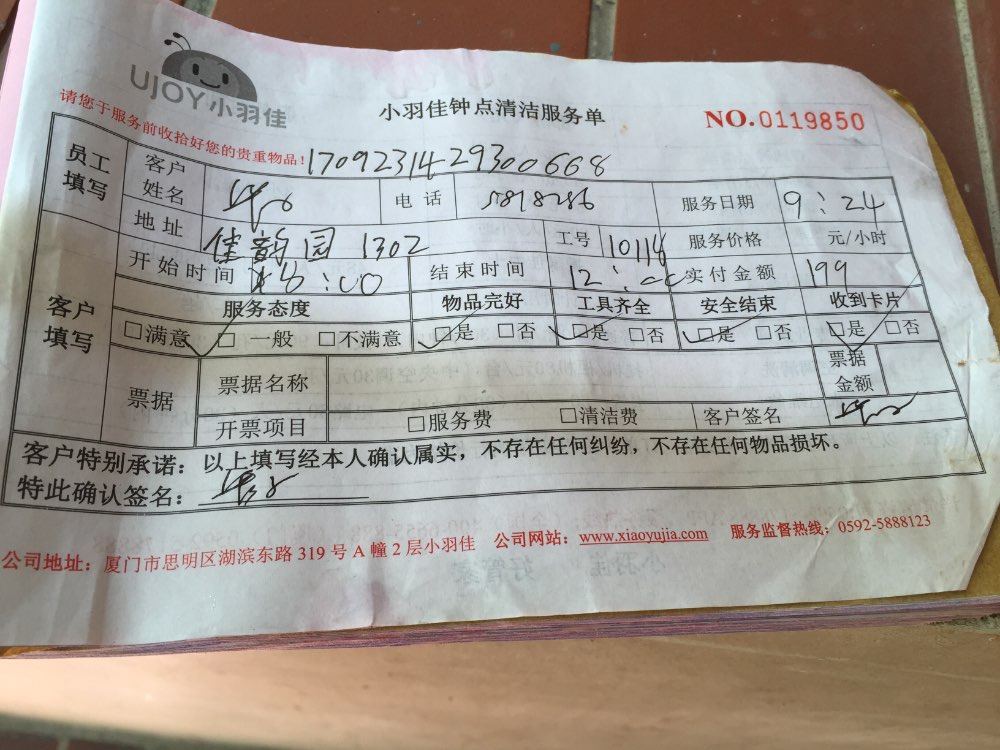 UJOY小羽佳
小羽佳钟点清洁服务单
NO.0119850
请您于服务前收拾好您的贵重物品!
1709231429300668
员工填写 客户姓名 电话 5818286 服务日期 9:24
地址 佳韵园 1302 工号 10114 服务价格 元/小时
开始时间 8:00 结束时间 12:00 实付金额 199
客户填写 服务态度 物品完好 工具齐全 安全结束 收到卡片
□满意 □一般 □不满意 □是 □否 □是 □否 □是 □否 □是 □否
票据 票据名称 票据金额
开票项目 □服务费 □清洁费 客户签名
客户特别承诺:以上填写经本人确认属实,不存在任何纠纷,不存在任何物品损坏。
特此确认签名:
公司地址:厦门市思明区湖滨东路 319 号 A 幢 2 层小羽佳 公司网站:www.xiaoyujia.com 服务监督热线:0592-5888123